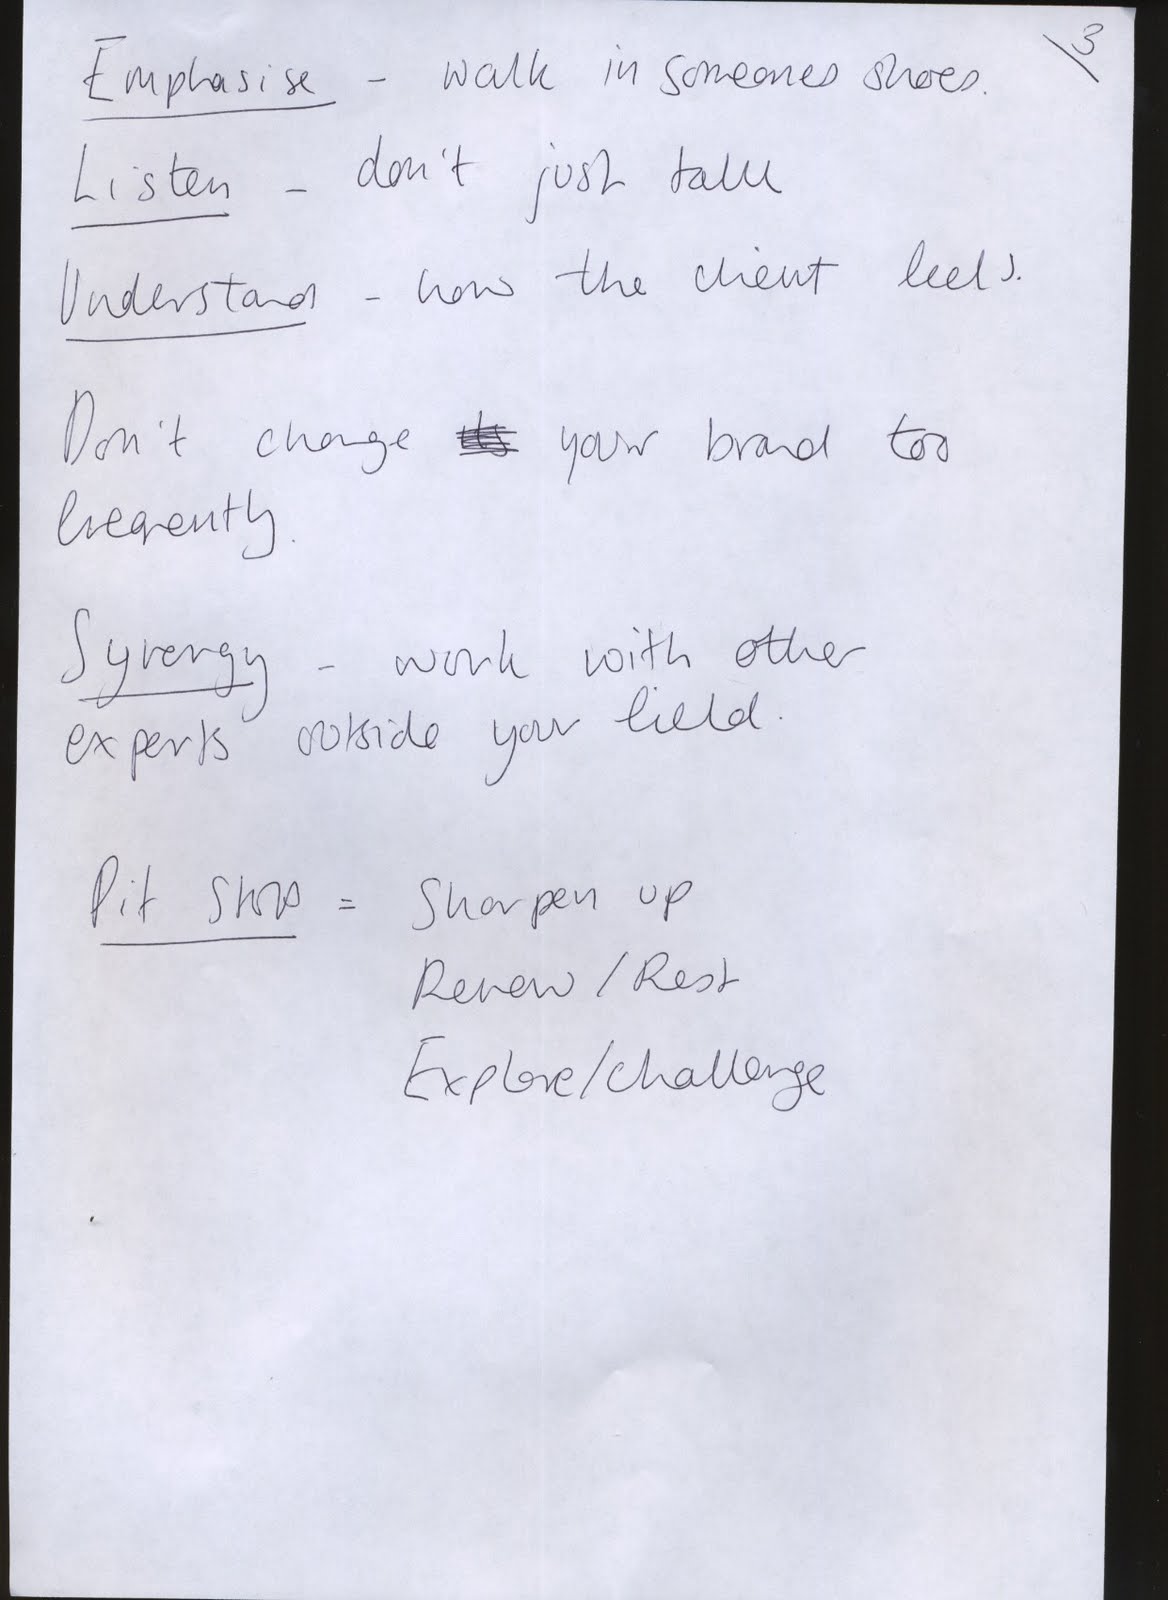 3
Emphasise - walk in someones shoes.
Listen - don't just talk
Understand - how the client feels.
Don't change your brand too
freqently.
Synergy - work with other
experts outside your field.
Pit Stop = Sharpen up
Renew / Rest
Explore/challenge